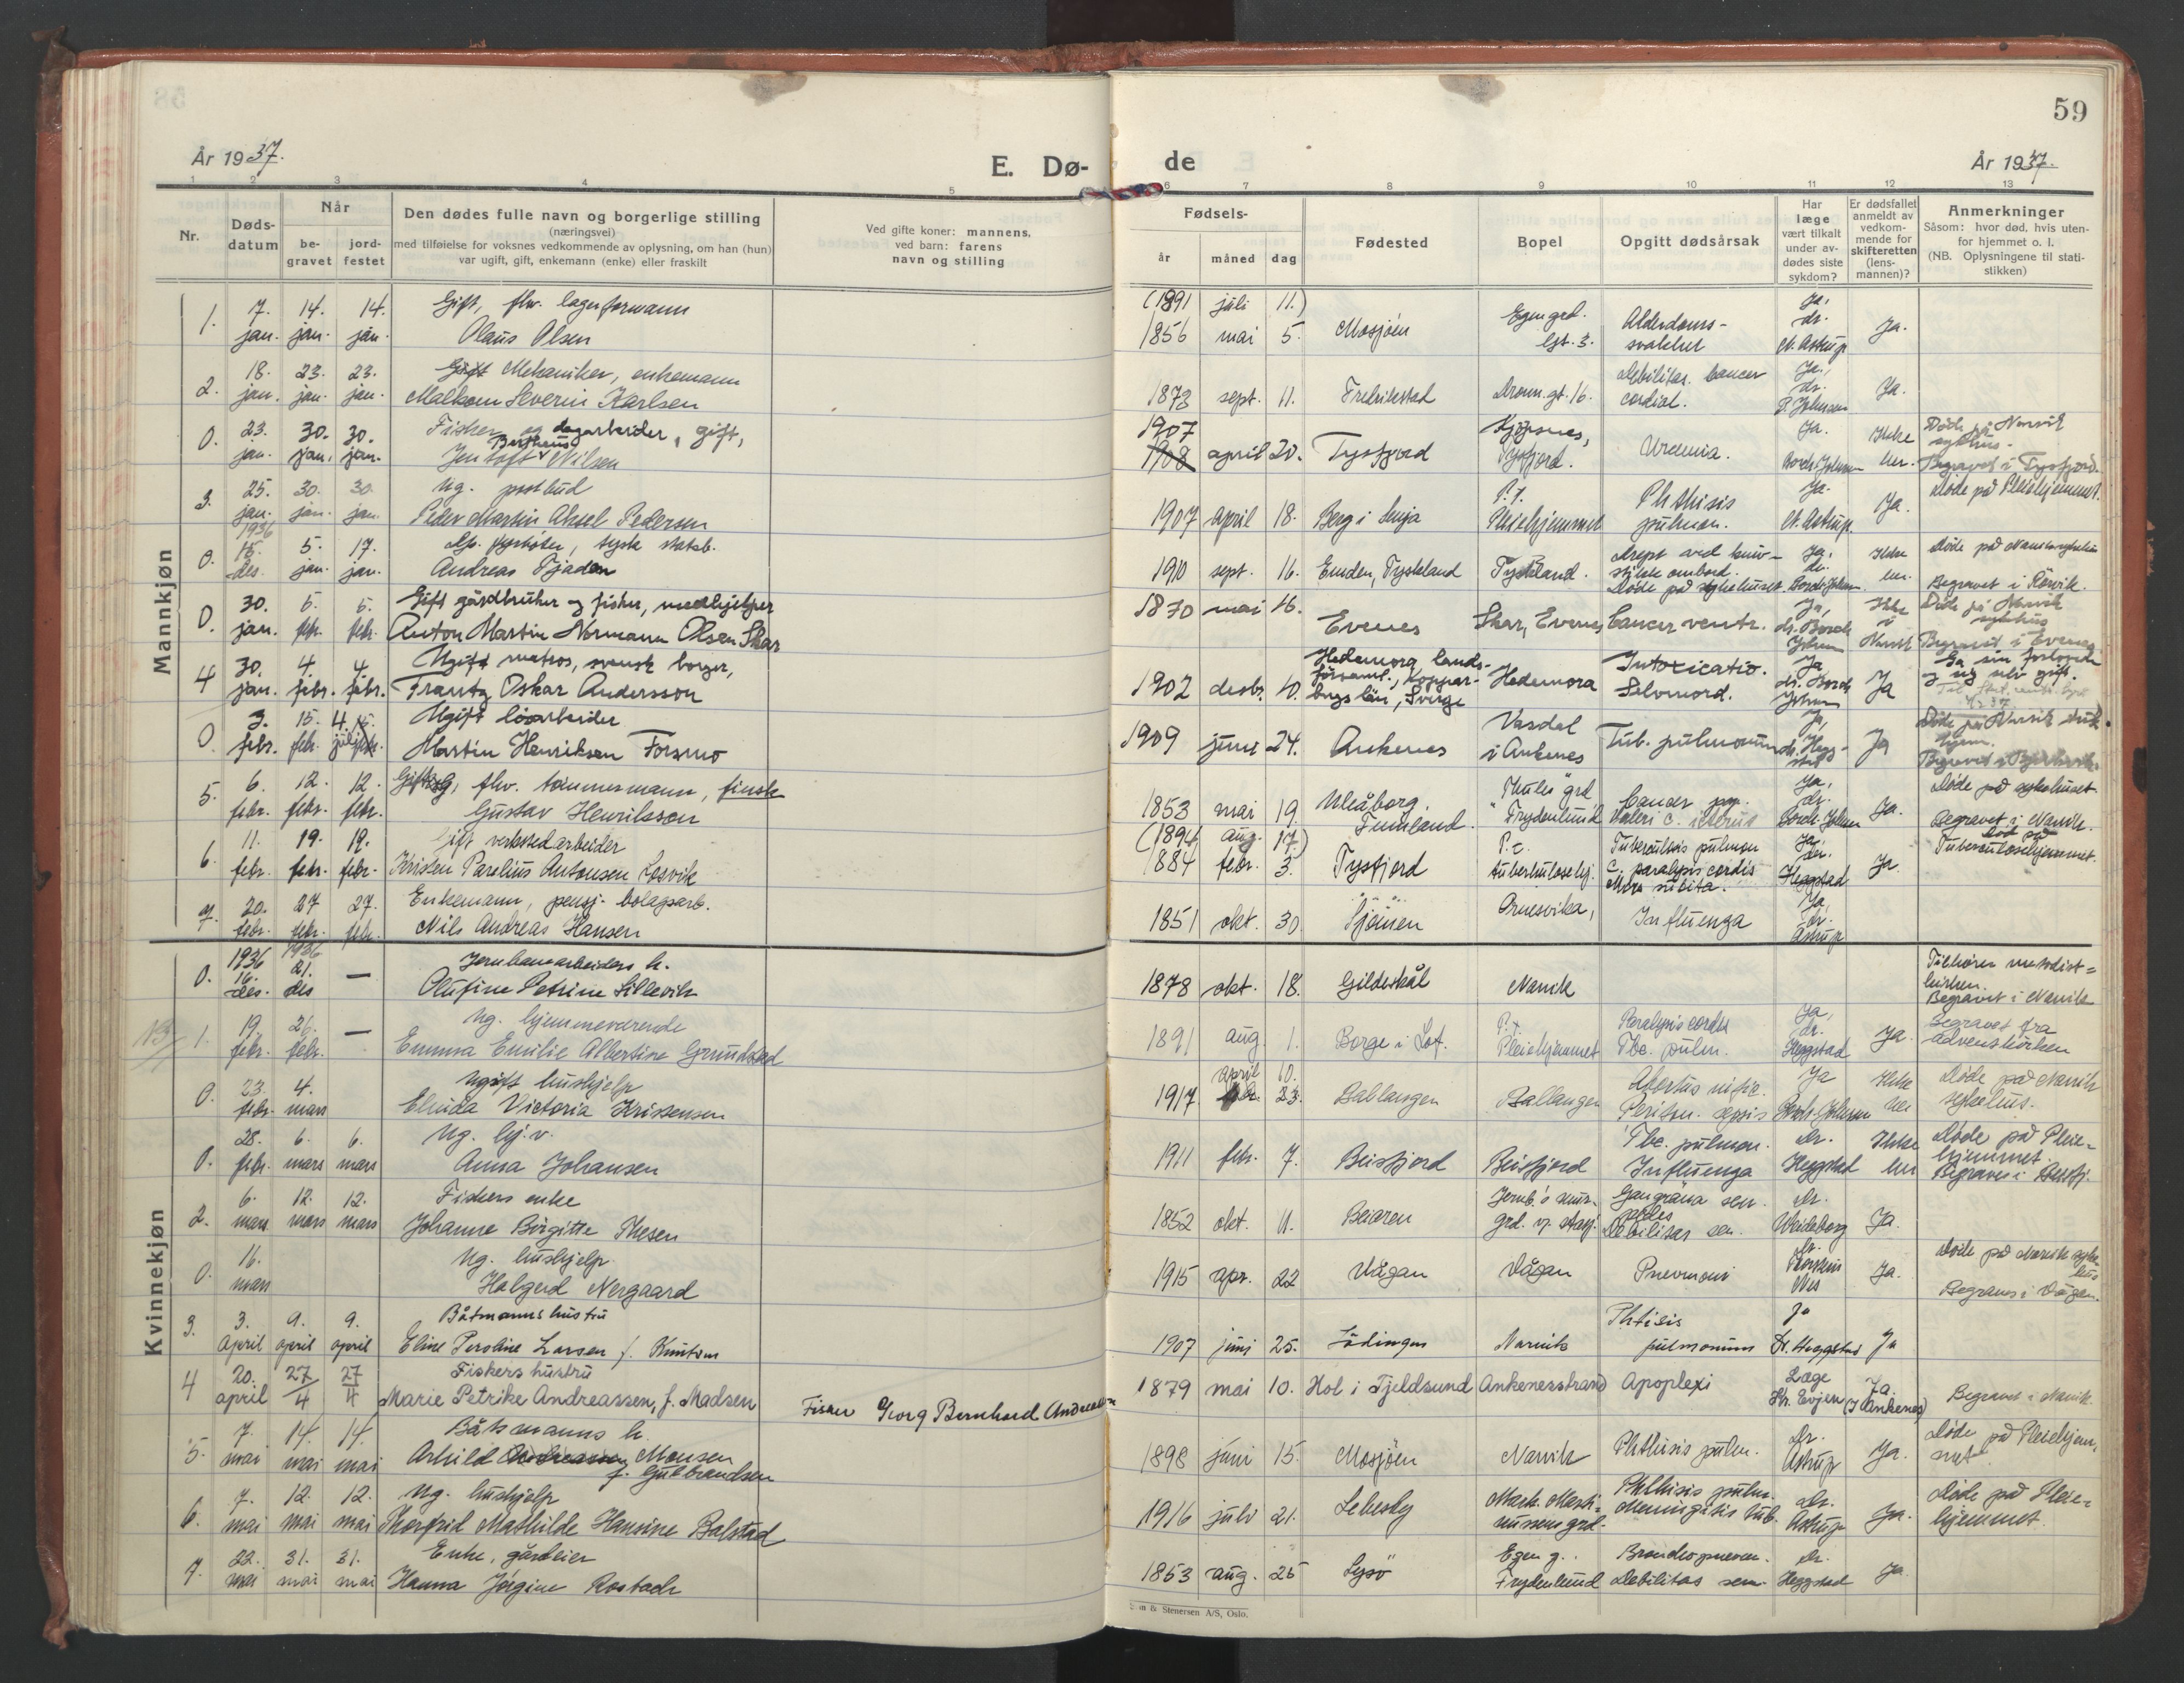 59
År 1937.
E. Dø-
de
År 1937.
1 2 3 4 5 6 7 8 9 10 11 12 13
Nr.
Døds-
datum
Når
be-
gravet
jord-
festet
Den dødes fulle navn og borgerlige stilling
(næringsvei)
med tilføielse for voksnes vedkommende av oplysning, om han (hun)
var ugift, gift, enkemann (enke) eller fraskilt
Ved gifte koner: mannens,
ved barn: farens
navn og stilling
Fødsels-
år måned dag
Fødested
Bopel
Opgitt dødsårsak
Har
læge
vært tilkalt
under av-
dødes siste
sykdom?
Er dødsfallet
anmeldt av
vedkom-
mende for
skifteretten
(lens-
mannen)?
Anmerkninger
Såsom: hvor død, hvis uten-
for hjemmet o. l.
(NB. Oplysningene til stati-
stikken)
Mannkjøn
1. 7. jan. 14. jan. 14. jan.
Gift, fhv. lagerformann
Olaus Olsen
(1891 juli 11.)
1856 mai 5. Mosjöen
Egen grd.
Alderdoms-
svakhet
Ja, dr. N. Astrup
Ja.
2. 18. jan. 23. jan. 23. jan.
Mekaniker, enkemann
Severin Karlsen
1873 sept. 11. Fredrikstad
Dronn.gt. 16.
Debilitas. Cancer
Ja, dr.
Ja.
0. 23. jan. 30. jan. 30. jan.
Fisker og dagarbeider, gift,
Jentoft Bertheus Nilsen
1907
1908 april 20. Tysfjord
Tysfjord.
Uremia.
Ja.
Ikke her.
Døde på Narvik
sykhus.
Begravet i Tysfjord.
3. 25. jan. 30. jan. 30. jan.
Ug. postbud
Peder Martin Aksel Pedersen
1907 april 18. Berg i Senja
P.t.
Pleiehjemmet
Phthisis
pulmon.
Ja. N. Astrup.
Ja.
Døde på Pleiehjemmet.
0. 1936 15. des. 5. jan. 17. jan.
Andreas Tjaden
1910 sept. 16. Emden, Tyskland
Tyskland.
ombord.
Døde på sykehuset.
Ja, dr.
Ikke her.
Begravet i Rörvik.
0. 30. jan. 5. febr. 5. febr.
Gift gårdbruker og fisker, medhjelper
Anton Martin Normann Olsen Skar
1870 mai 16. Evenes
Skar, Evenes
Cancer ventr.
Ja, dr. Borch Johnsen
Ikke i Narvik
Døde på Narvik
sykhus
Begravet i Evenes
4 30. jan. 4. febr. 4. febr.
Ugift matros, svensk borger,
Frantz Oskar Andersson
1902 desbr. 10.
Hedemora lands-
församl., Koppar-
bergs län, Sverge
Hedemora
Intoxicatio.
Selvmord.
Ja dr. Borch Johnsen
Ja
0. 3. febr. 15. febr. 4. juli
Ugift løsarbeider
Martin Henriksen Forsmo
1909 juni 24. Ankenes
Vasdal
i Ankenes
Tub. pulmonum
Ja, dr. Hegg-stad
Ja
5. 6. febr. 12. febr. 12. febr.
Gift, fhv. tømmermann, finsk
Gustav Henriksson
1853 mai 19. Uleåborg.
Finnland.
"Thules" grd
Frydenlund
Ja, dr. Borch-Johnsen
Ja.
Døde på sykehuset.
Begravet i Narvik.
6. 11. febr. 19. febr. 19. febr.
Gift verkstedarbeider
Kristen Parelius Antonsen Losvik
(1894 aug. 17.)
1884 febr. 3. Tysfjord
P.t.
tuberkulosehj.
Tuberculosis pulmon
c. paralysis cordis
Mors subita.
Ja, dr. Heggstad
Ja.
Død på
Tuberculosehjemmet.
7. 20. febr. 27 febr. 27. febr.
Enkemann, pensj. bolagsarb.
Nils Andreas Hansen
1851 okt. 30.
Ornesvika,
Influenza
Ja, dr. Astrup
Kvinnekjøn
0. 1936 16. des. 1936 21. des —
Jernbanearbeiders h.
Olufine Petrine Sillevik
1878 okt. 18. Gildeskål
Narvik
Tilhører metodist=
kirken.
Begravet i Narvik
1. 19. febr. 26. febr. —
Ug. hjemmeværende
Emma Emilie Albertine Grundstad
1891 aug. 1. Borge i Lof.
P.t.
Pleiehjemmet
Paralysis cordis
Tbc. pulm.
Ja, dr. Heggstad
Ja.
Begravet fra
Adventskirken
0. 23. febr. 4. mars
Ugift hushjelp
Elvida Victoria Kristensen
april 10.
1917 23. Ballangen
Ballangen
Ja Borch-Johnsen
Ikke her
Døde på Narvik
sykehus.
0. 28. febr. 6. mars 6. mars
Ug. hj.v.
Anna Johansen
1911 febr. 7. Beisfjord
Beisfjord
Tbc. pulmon.
Influenza
Dr. Heggstad
Ikke her
Døde på Pleie-
hjemmet.
Begraves i Beisfj.
2. 6. mars 12. mars 12. mars
Fiskers enke
Johanne Birgitte Thesen
1852 okt. 11. Beiaren
Gangräna sen.
Debilitas sen.
Dr.
Ja.
0. 16. mars
Ug. hushjelp
Holgerd Nergaard
1915 apr. 22 Vågan
Vågan
Pneumoni
Dr.
Ja.
Døde på Narvik syke
hus
Begraves i Vågan.
3. 3. april 9. april 9. april
Båtmanns hustru
Eline Peroline Larsen f. Knutsen
1907 juni 25. Lödingen
Narvik
Phtisis
pulmonum
Ja Dr. Heggstad
Ja
4 20. april 27/4 27/4
Fiskers hustru
Marie Petrike Andreassen, f. Madsen
Fisker Georg Bernhard Andreassen
1879 mai 10. Hol i Tjeldsund
Ankenesstrand
Apoplexi
Læge Kr. Evjen
Ja. (I Ankenes)
Begravet i Narvik
5. 7. mai 14. mai 14. mai
Båtsmanns h.
Arhild Andreassen Monsen
f. Gulbrandsen
1898 juni 15. Mosjöen
Narvik
Phthisis pulm.
Dr. Astrup
Ja.
Døde på Pleiehjem,
met
6. 7. mai 12. mai 12. mai
Ug. hushjelp
Thorfrid Mathilde Hansine Balstad
1916 juli 21. Lebesby
Phthisis pulm.
Meningitis tub.
Dr. Astrup
Ja.
Døde på Pleie=
hjemmet.
7. 22. mai 31. mai 31. mai
Enke, gårdeier
Hanna Jörgine Rostad
1853 aug. 25
Egen g.
Frydenlund
Debilitas sen.
Dr. Heggstad
Ja
& Stenersen A/S, Oslo.